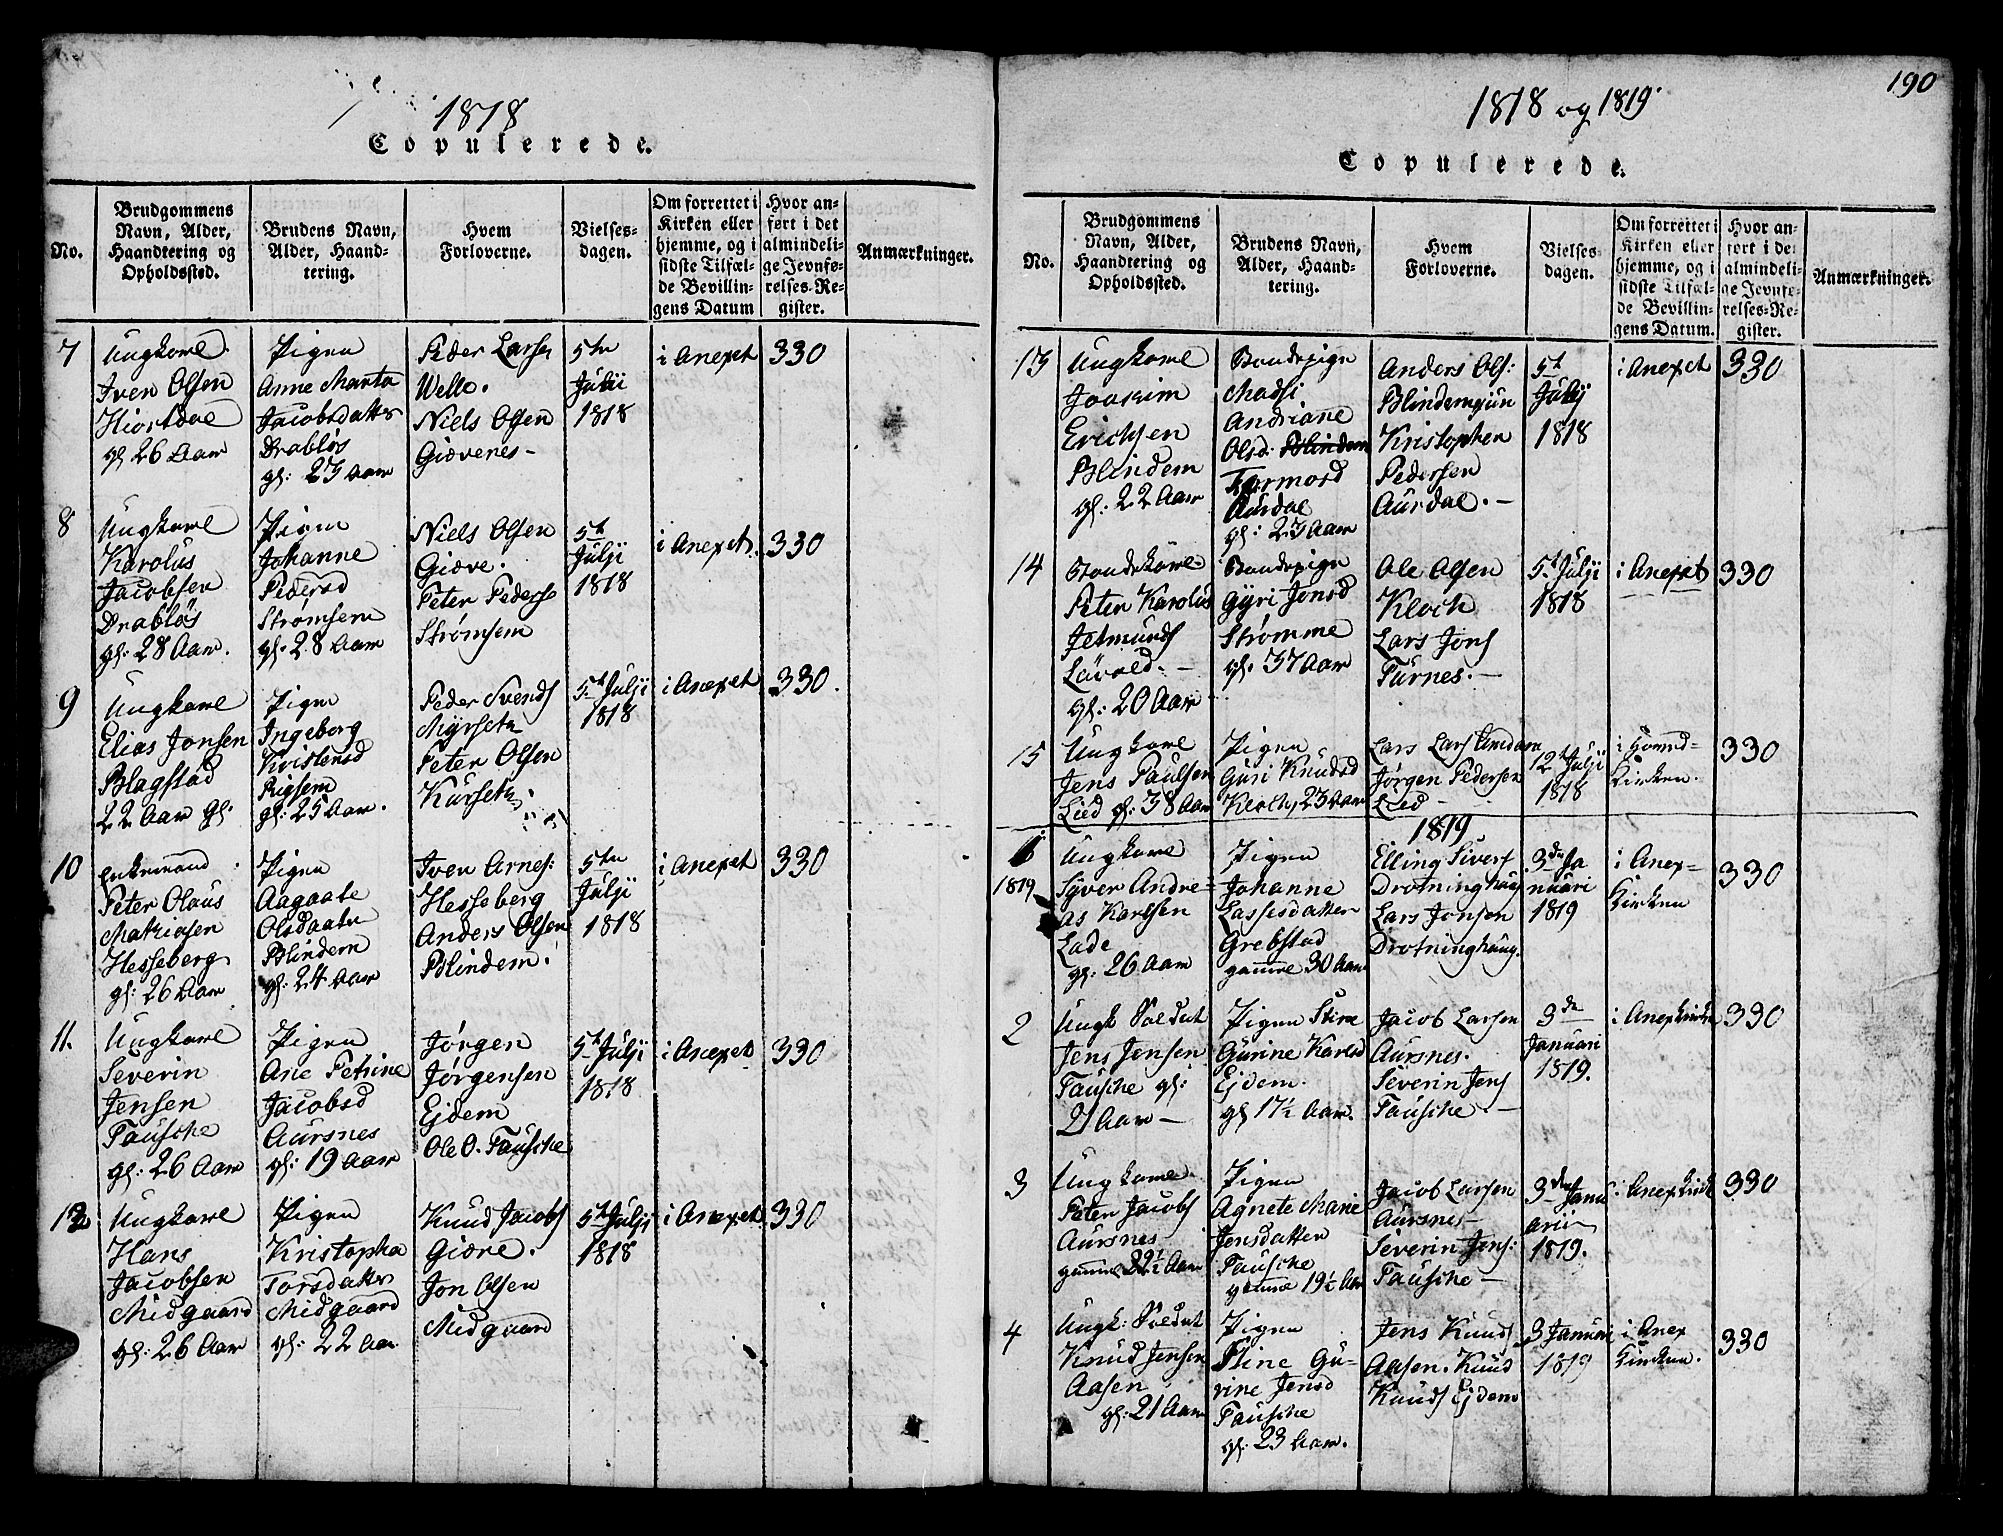 1818
Copulerede.
No.
Brudgommens
Navn, Alder,
Haandtering og
Opholdssted.
Brudens Navn,
Alder, Haand-
tering.
Hvem
Forloverne.
Vielses-
dagen.
Om forrettet i
Kirken eller
hjemme, og i
sidste Tilfæl-
de Bevillin-
gens Datum
Hvor an-
ført i det
almindeli-
ge Jevnfø-
relses-Re-
gister.
Anmærkninger.
7
Ungkarl
Iven Olsen
Hiortdal
gl 26 Aar
Pigen
Anne Marta
Jacobsdatter
Drabløs
gl: 23 Aar
Peder Larsen
Welle.
Niels Olsen
Giævenes-
5te
Julji
1818
i Anexet
330
8
Ungkarl
Karolus
Jacobsen
Drabløs
gl: 28 Aar.
Pigen
Johanne
Pedersd
Strømsem
gl. 28 Aar
Niels Olsen
Giæve.
Peter Peders
Strømsem
5t
Julji
1818
i Anexet.
330
9
Ungkarl
Elias Jonsen
Blagstad
22 Aar gl.
Pigen
Ingeborg
Kristensd
Rigsem
gl: 25 Aar.
Peder Svends
Myrseth
Peter Olsen
Kurseth
5t Julji
1818
i Anexet
330.
10
Enkemand
Peter Olaus
Mathiasen
Hesseberg
gl: 26 Aar
Pigen
Aagaate
Olsdaater
Blindem
gl: 24 Aar
Iven Arnes:
Hesseberg
Anders Olsen
Blindem.
5te
Julji
1818
i Anexet
330
11.
Ungkarl
Severin
Jensen
Fausche
gl: 26 Aar
Pigen
Ane Petrine
Jacobsd
Aursnes
gl: 19 Aar
Jørgen
Jørgensen
Ejdem
Ole O. Fausche
5t Julji
1818
i Anexet
330
12
Ungkarl
Hans
Jacobsen
Midgaard
gl: 26 Aar
Pigen
Kristopha
Torsdatter
Midgaard
gl: 22 Aar
Knud Jacobs
Giære.
Jon Olsen
Midgaard
5t Julji
1818
i Anexet
330
190
1818 og 1819
Copulerede.
No.
Brudgommens
Navn, Alder,
Haandtering og
Opholdssted.
Brudens Navn,
Alder, Haand-
tering.
Hvem
Forloverne.
Vielses-
dagen.
Om forrettet i
Kirken eller
hjemme, og i
sidste Tilfæl-
de Bevillin-
gens Datum.
Hvor an-
ført i det
almindeli-
ge Jevnfø-
relses-Re-
gister.
Anmærkninger.
13
Ungkarl
Joakim
Erichsen
Blindem
gl: 22 Aar
Bondepige
Madsi
Andriane
Olsd. Blindem
Farmord
Aurdal
gl: 23 Aar
Anders Ols:
Blindem
Kristophen
Pedersen
Aurdal.-
5t
Julij
1818
i Anexet
330
14
Bondekarl-
Peter Karolus
Jetmunds
Løvold.-
gl: 20 Aar
Bondepige
Gyri Jonsd
Strømme
gl. 37 Aar
Ole Olsen
Kloch
Lars Jons
Furnes.-
5t Julji
1818
i Anexet
330
15
Ungkarl
Jens Paulsen
Lied gl: 38 Aar
Pigen
Guri Knudsd
Kloch, 23 Aar
Lars Lars Amdam
Jørgen Pedersen
Lied -
12t Julji
1818
i Hoved-
Kirken.
330
1819
1
1819
Ungkarl
Syver Andre-
as Karlsen
Lade
gl: 26 Aar
Pigen
Johanne
Lassesdatter
Grebstad
gamle 30 Aar
Elling Sivers
Drotninghaug
Lars Jonsen
Drotninghaug.
3de Ja
nuari
1819
i Anex-
Kirken
330
2
Ungk Soldat
Jens Jensen
Fausche gl:
21 Aar -
Pigen Stine
Gurine Karlsd
Ejdem.
gl 17½ Aar.
Jacob Larsen
Aursnes.
Severin Jens
Fausche.-
3de
Januari
1819.
i Anexkirken
330
3
Ungkarl
Peter Jacobs
Aursnes
gamle 22½ Aar
Pigen
Agnete Marie
Jensdatter
Fausche
gamle 19½ Aar
Jacob Larsen
Aursnes-
Severin Jens:
Fausche-
3de Janu
arii
1819.
i Anexkirk
330
4
Ungk: Soldat
Knud Jensen
Aasen
gl: 21 Aar
Pigen
Stine Gu-
rine Jensd
Fausche
gl: 23 Aar.
Jens Knuds
Aasen. Knud
Knuds Ejdem
3 Januari
1819
i Anex
Kirken.
330